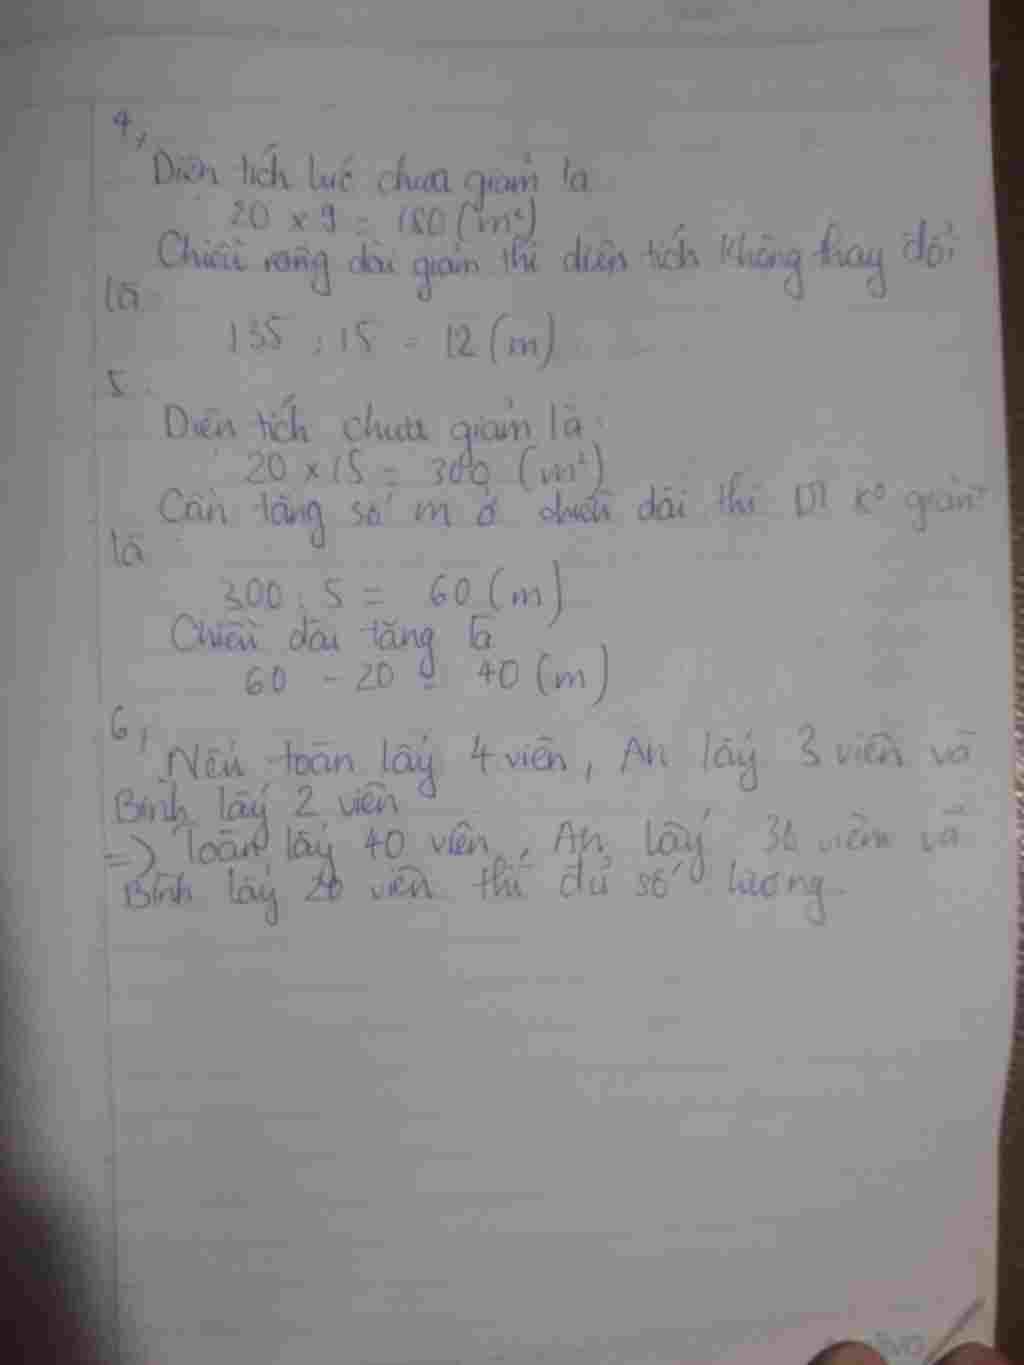 4,
Diện tích lúc chưa giảm là
20 x 9 = 180 (m²)
Chiều rộng dài giảm thì diện tích không thay đổi
là
135 : 15 = 12 (m)
5.
Diện tích chưa giảm là:
20 x 15 = 300 (m²)
Cần tăng số m ở chiều dài thì DT k° giảm
là
300 : 5 = 60 (m)
Chiều dài tăng là
60 - 20 = 40 (m)
6,
Nếu toàn lấy 4 viên, An lấy 3 viên và
Bình lấy 2 viên
=> Toàn lấy 40 viên, An lấy 30 viên và
Bình lấy 20 viên thì đủ số lượng.
vivo